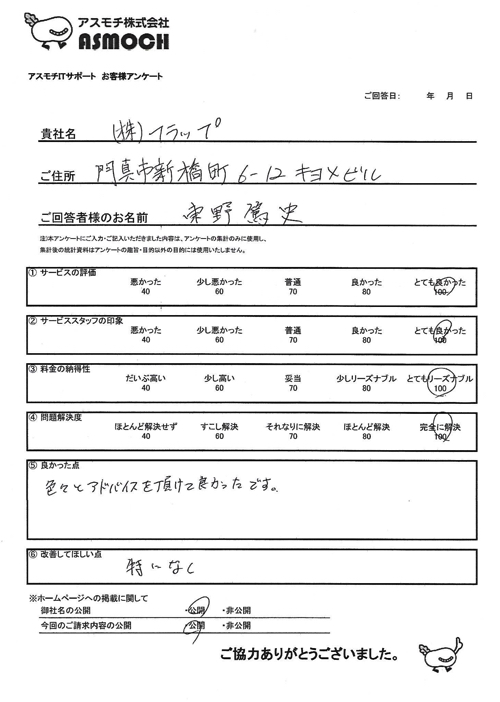 アスモチ株式会社
ASMOCH
アスモチITサポート お客様アンケート
ご回答日: 年 月 日
貴社名 (株)フラップ
ご住所 門真市新橋町6-12 キヨメビル
ご回答者様のお名前 東野篤史
注)本アンケートにご入力・ご記入いただきました内容は、アンケートの集計のみに使用し、
集計後の統計資料はアンケートの趣旨・目的以外の目的には使用いたしません。
① サービスの評価
悪かった 少し悪かった 普通 良かった とても良かった
40 60 70 80 100
② サービススタッフの印象
悪かった 少し悪かった 普通 良かった とても良かった
40 60 70 80 100
③ 料金の納得性
だいぶ高い 少し高い 妥当 少しリーズナブル とてもリーズナブル
40 60 70 80 100
④ 問題解決度
ほとんど解決せず すこし解決 それなりに解決 ほとんど解決 完全に解決
40 60 70 80 100
⑤ 良かった点
色々とアドバイスを頂けて良かったです。
⑥ 改善してほしい点
特になし
※ホームページへの掲載に関して
御社名の公開 ・公開 ・非公開
今回のご請求内容の公開 ・公開 ・非公開
ご協力ありがとうございました。